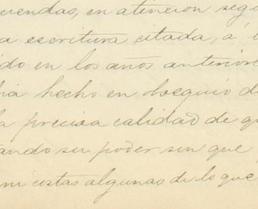 uendas, en atencion segu
a escritura citada, á
do en los años anterior
hia hecho en obsequio d
la precisa calidad de q
ando su poder sin que
ni costas algunas de lo que